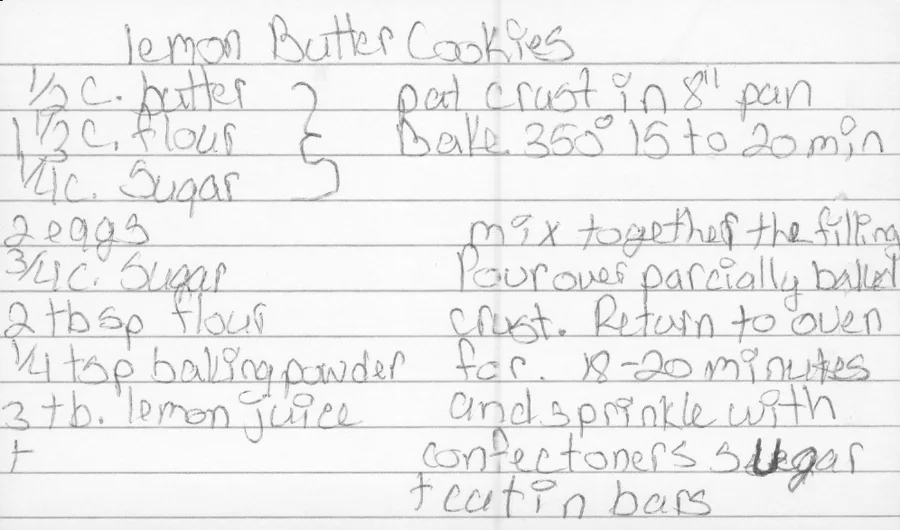 lemon Butter Cookies
1/2 c. butter
1 1/2 c. flour
1/4 c. Sugar
pat crust in 8" pan
Bake 350° 15 to 20 min
2 eggs
3/4 c. Sugar
2 tbsp flour
1/4 tsp baking powder
3 tb. lemon juice
+
mix together the filling
Pour over parcially baked
crust. Return to oven
for. 18-20 minutes
and sprinkle with
confectoners sugar
+ cut in bars